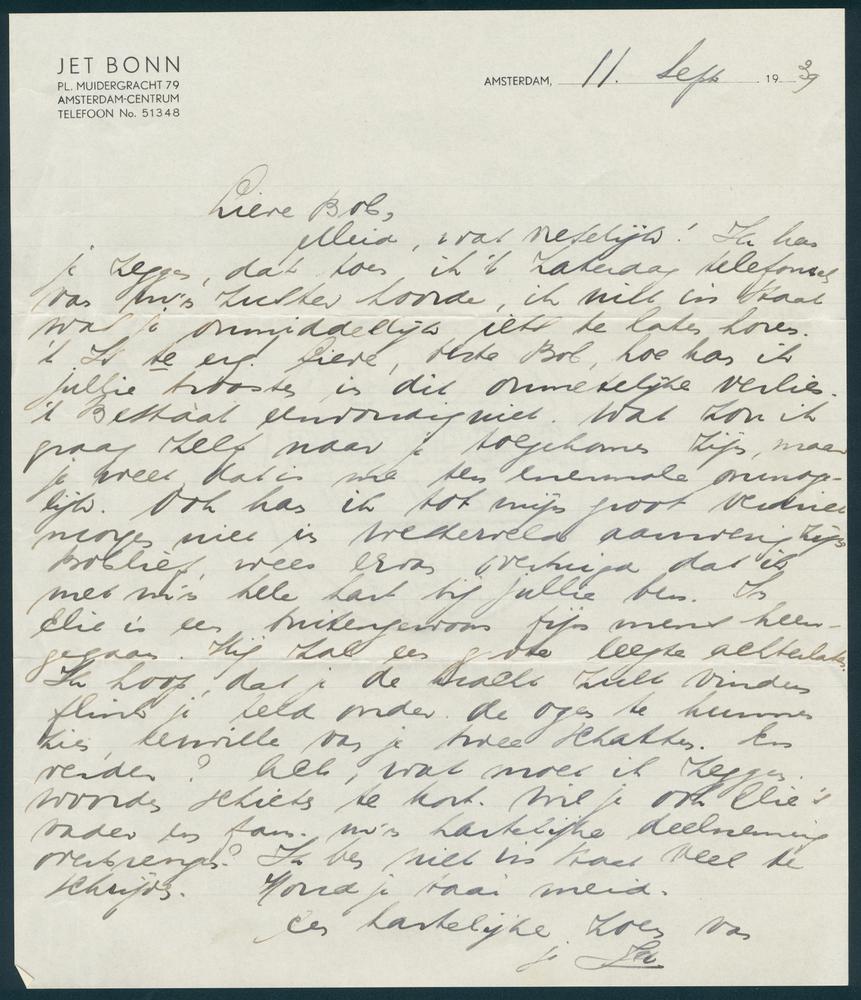 JET BONN
PL. MUIDERGRACHT 79
AMSTERDAM-CENTRUM
TELEFOON No. 51348
AMSTERDAM, 11. Sept 1939
Lieve Bob,
Meid, wat vreselijk! Ik kan
je zeggen, dat toen ik 't Zaterdag telefonisch
van m'n zuster hoorde, ik niet in staat
was je onmiddellijk iets te laten horen.
't Is te erg. Lieve, beste Bob, hoe kan ik
jullie troosten in dit onmetelijke verlies.
't Bestaat eenvoudig niet. Wat zou ik
graag zelf naar je toegekomen zijn, maar
je weet, dat is me ten enenmale onmoge-
lijk. Ook kan ik tot mijn groot verdriet
morgen niet in Westerveld aanwezig zijn
Boblief, wees ervan overtuigd dat ik
met m'n hele hart bij jullie ben. In
Elie is een buitengewoon fijn mens heen-
gegaan. Hij zal een grote leegte achterlaten.
Ik hoop, dat je de kracht zult vinden
flink je leed onder de ogen te kunnen
zien, terwille van je twee schatten. En
verder? Ach, wat moet ik zeggen.
woorden schieten te kort. Wil je ook Elie's
vader en fam. m'n hartelijke deelneming
overbrengen? Ik ben niet in staat veel te
schrijven. Houd je taai meid.
Een hartelijke zoen van
je Jet